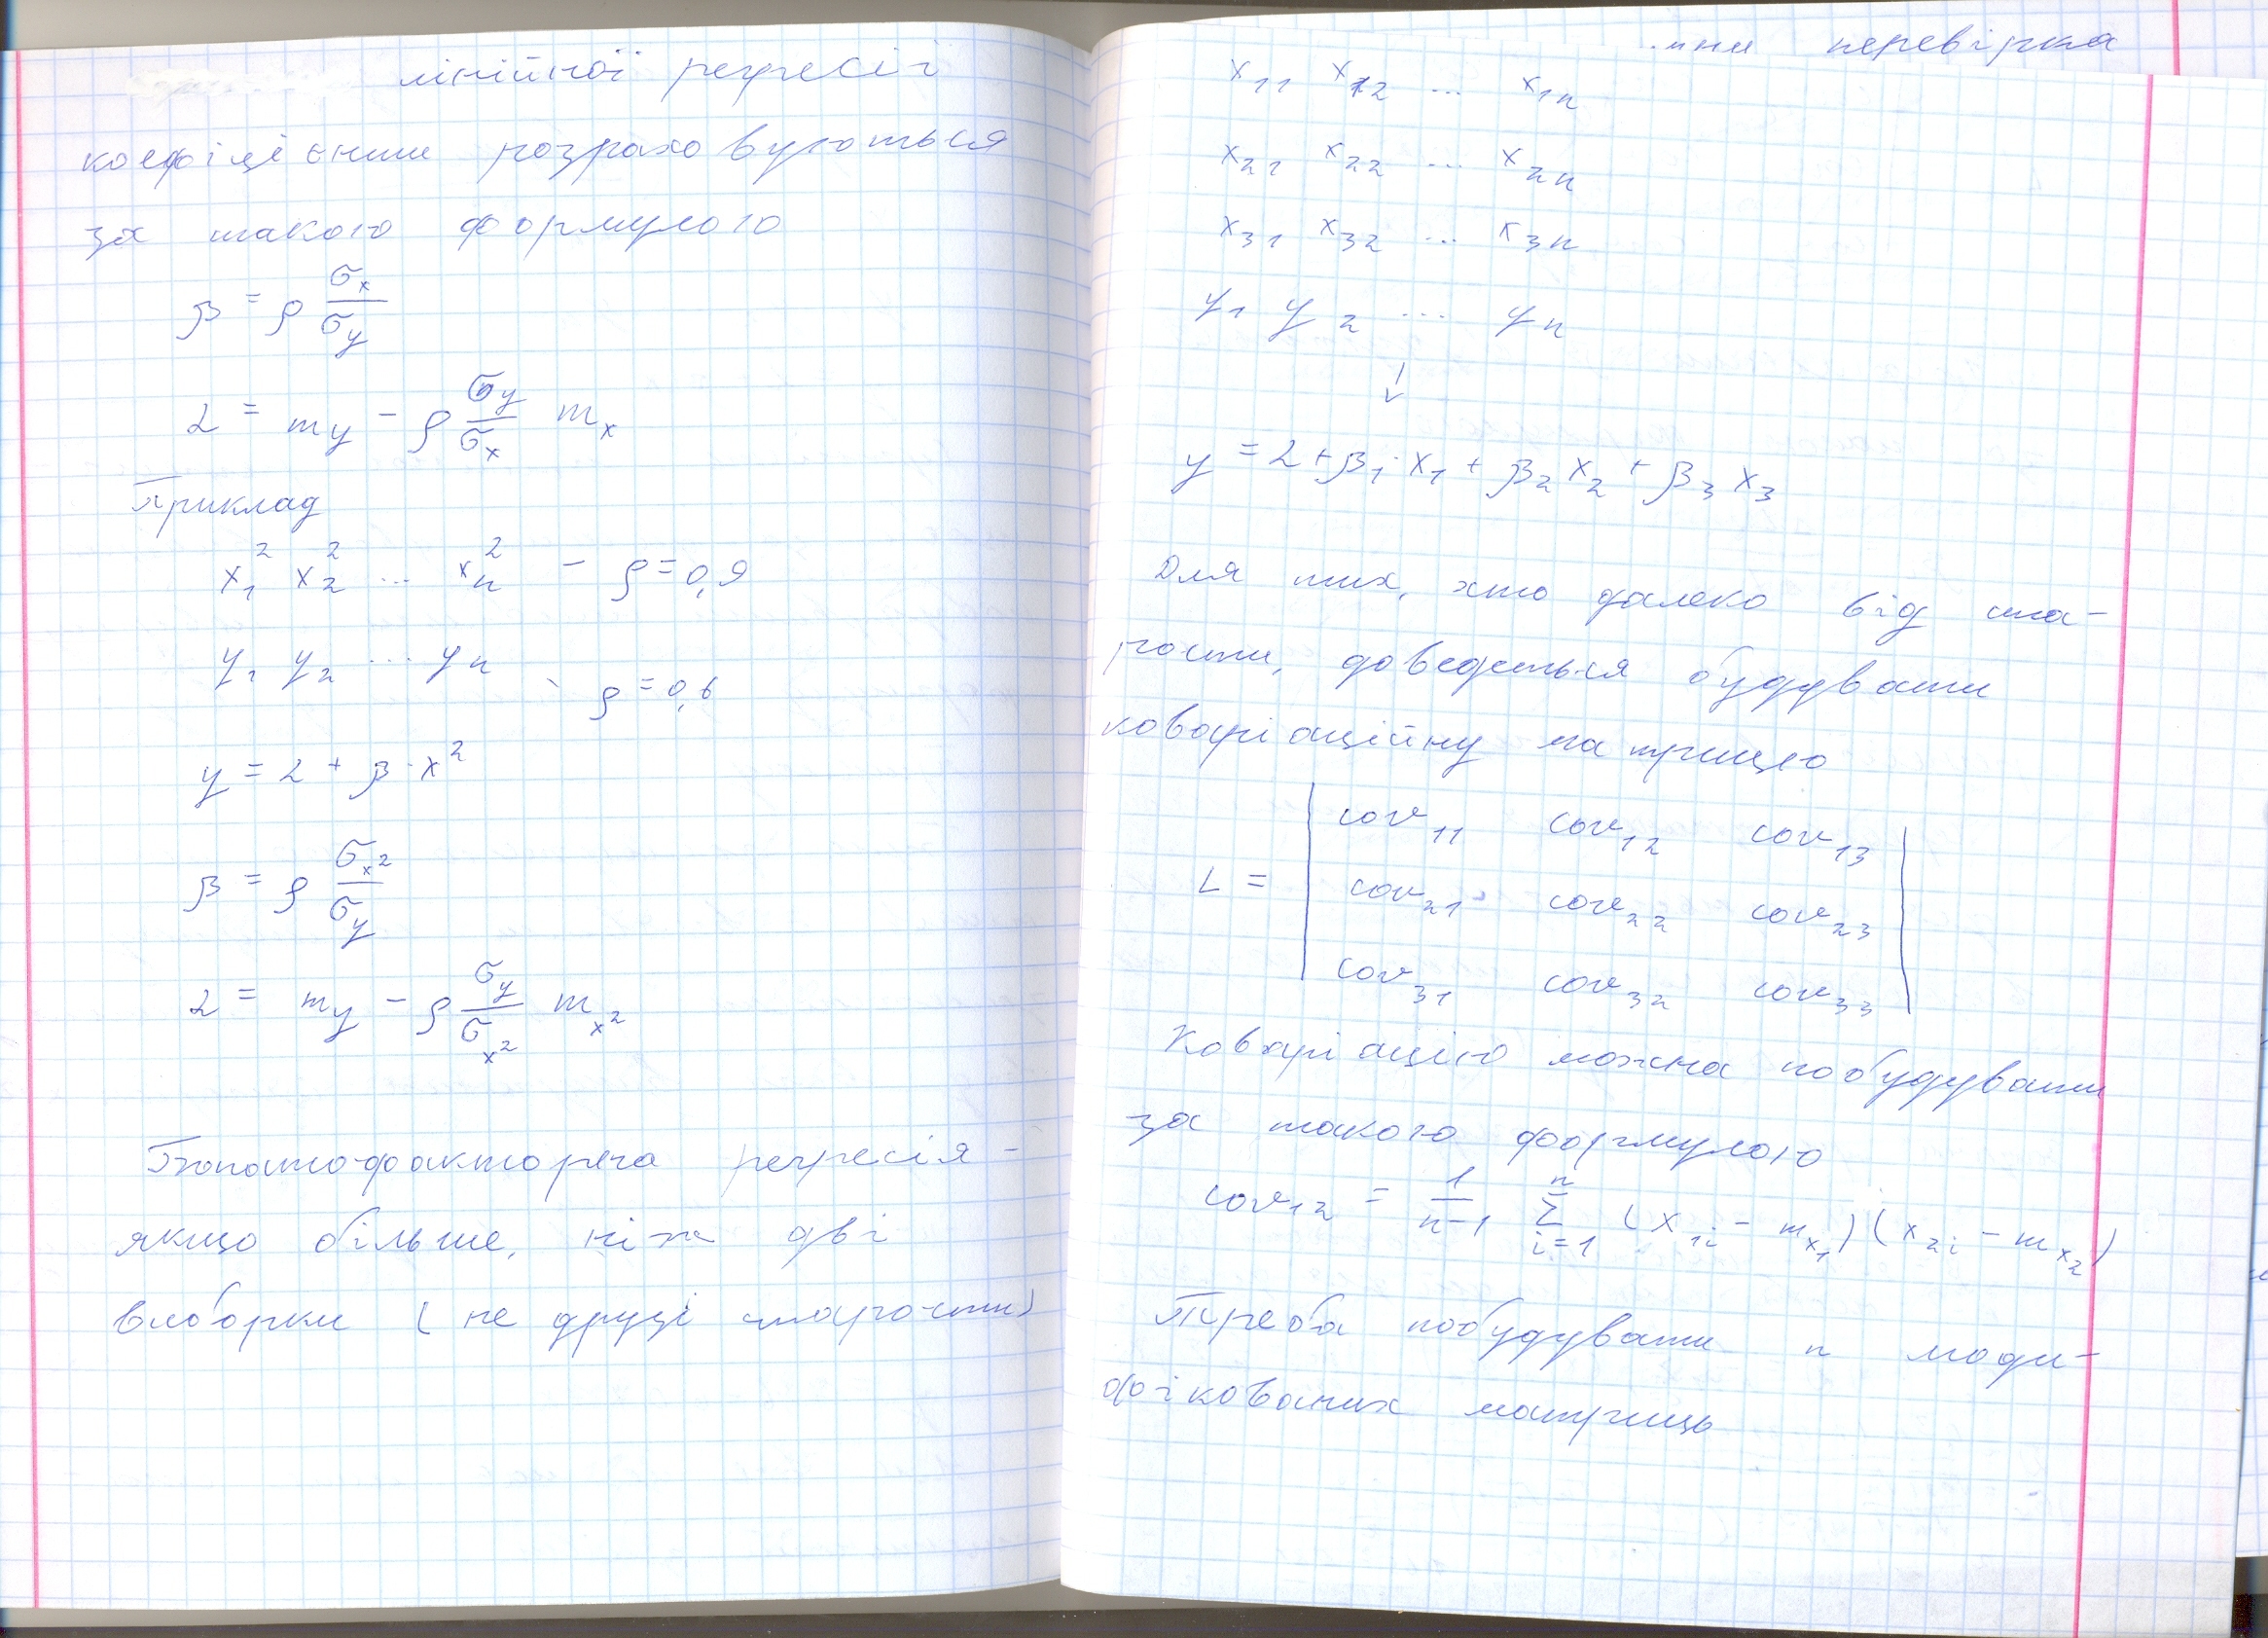 лінійної регресії
коефіцієнти розраховуються
за такою формулою
β = ρ σx/σy
α = my − ρ σy/σx mx
Приклад
x₁² x₂² ... xn² − ρ = 0,9
y₁ y₂ ... yn - ρ = 0,6
y = α + β·x²
β = ρ σx²/σy
α = my − ρ σy/σx² mx²
Багатофакторна регресія -
якщо більше, ніж дві
виборки (не друзі старости)
перевірка
x₁₁ x₁₂ ... x₁n
x₂₁ x₂₂ ... x₂n
x₃₁ x₃₂ ... x₃n
y₁ y₂ ... yn
↓
y = α + β₁·x₁ + β₂x₂ + β₃x₃
Для тих, хто далеко від ста-
рости, доведеться будувати
коваріаційну матрицю
L = | cov₁₁ cov₁₂ cov₁₃ |
cov₂₁ cov₂₂ cov₂₃
cov₃₁ cov₃₂ cov₃₃
Коваріацію можна побудувати
за такою формулою
cov₁₂ = 1/(n−1) Σ i=1 n (x₁i − mx₁)(x₂i − mx₂)
Треба побудувати n моди-
фікованих матриць